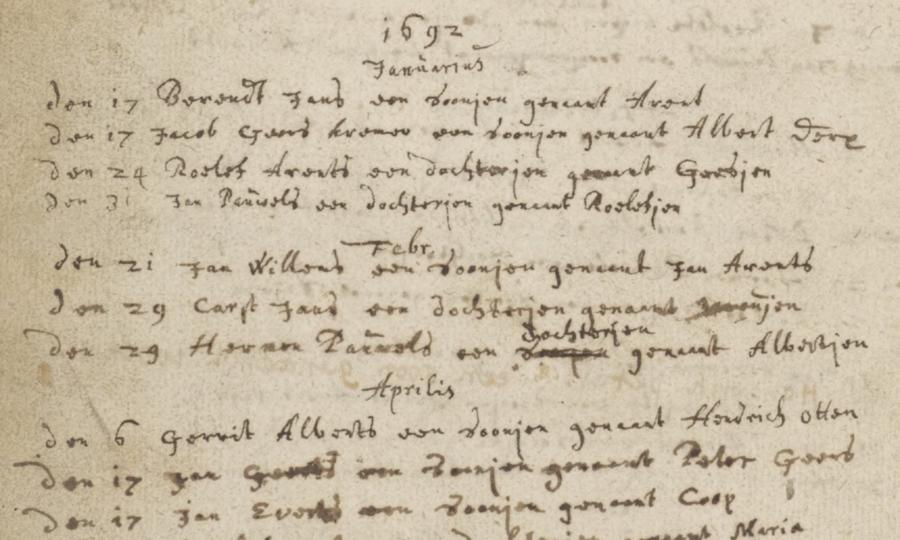 1692
Januarius
den 17 Berendt Jans een soonjen genaamt Arent
den 17 Jacob Geers kremer een soonjen genaamt Albert Derx
den 24 Roelef Arents een dochterjen genaamt Geesjen
den 31 Jan Pauwels een dochterjen genaamt Roelefjen
Febr
den 21 Jan Willems een soonjen genaamt Jan Arents
den 29 Carst Jans een dochterjen genaamt
dochterjen
den 29 Hermen Pauwels een genaamt Albertjen
Aprilis
den 6 Gerrit Alberts een soonjen genaamt Hendrich Otten
den 17 Jan Geerts een soonjen genaamt Peter Geers
den 17 Jan Everts een soonjen genaamt Coop
genaamt Maria